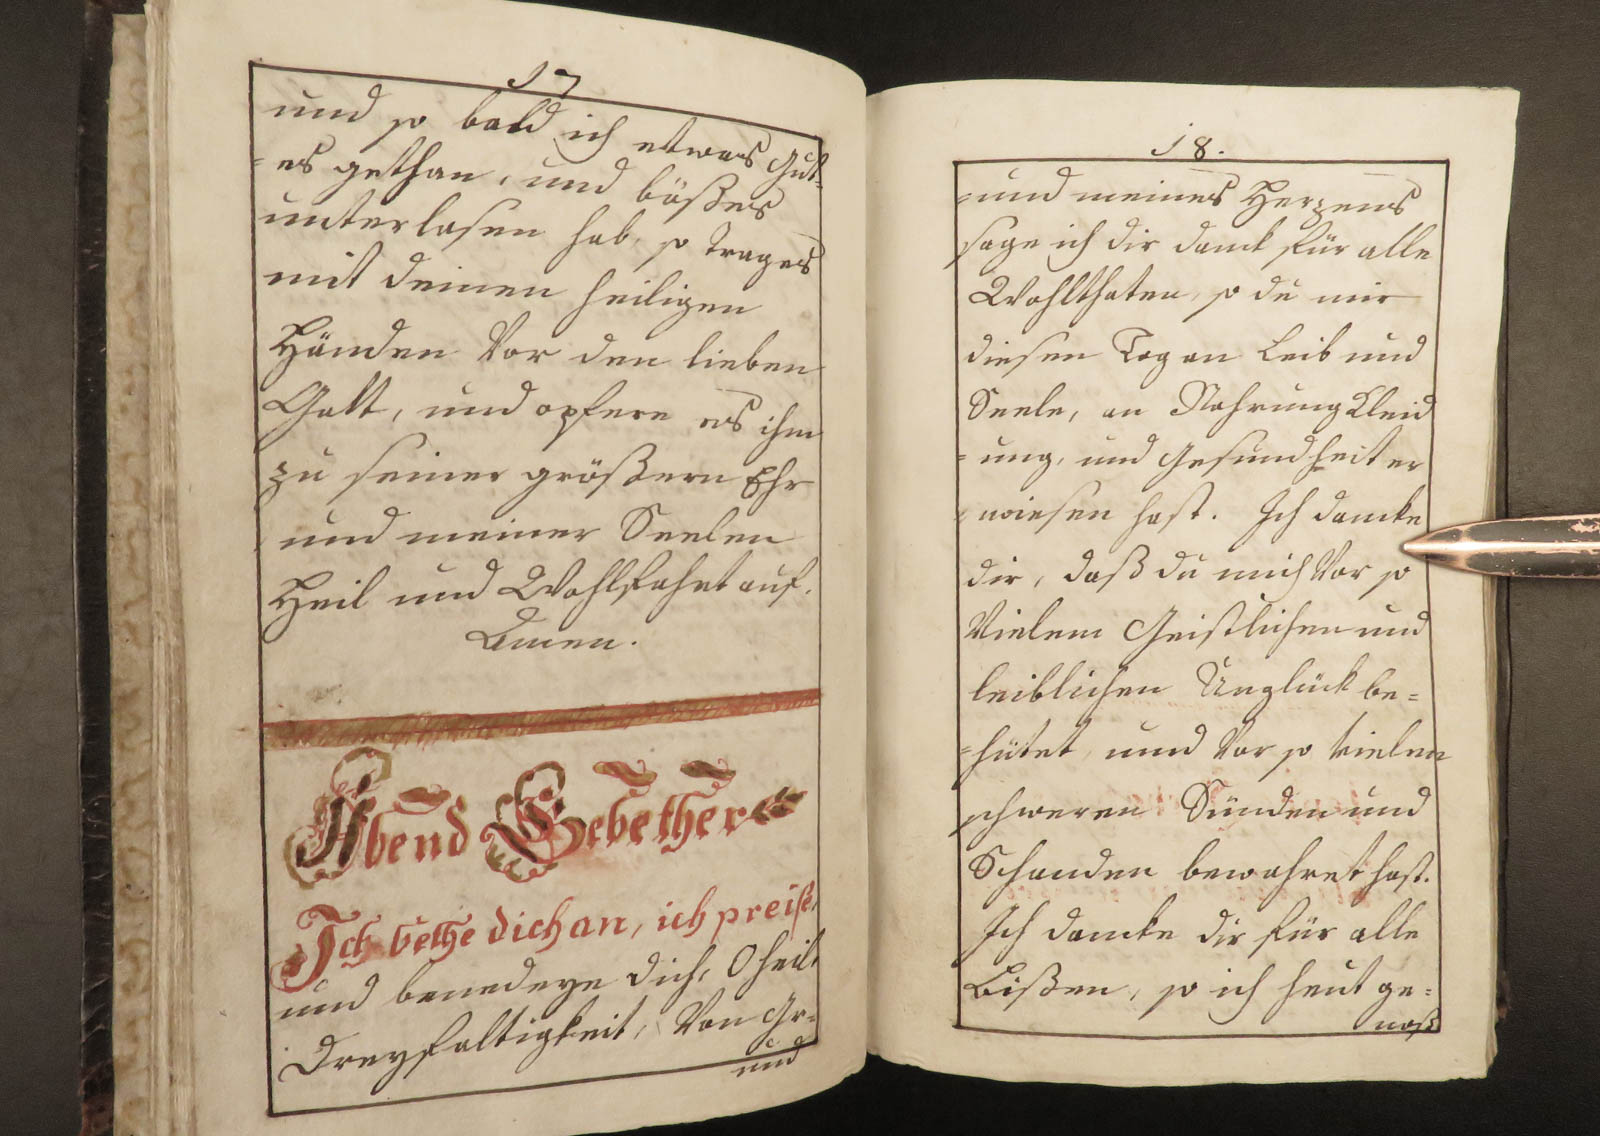 17
und so bald ich etwas Gut-
=es gethan, und bößes
unterlasen hab, so trages
mit deinen heiligen
Händen Vor den lieben
Gott, und opfere es ihm
zu seiner größern Ehr
und meiner Seelen
Heil und Wohlfahrt auf.
Amen.
Abend Gebether
Ich bethe dich an, ich preise,
und benedeye dich, O heil.
Dreyfaltigkeit, Von Gr=
und
18.
=und meines Herzens
sage ich dir danck für alle
Wohlthaten, so du mir
diesen Tog an Leib und
Seele, an Nahrung Kleid
=ung, und Gesundheit er
=wiesen hast. Ich dancke
dir, daß du mich Vor so
Vielem Geistlichen und
leiblichen Unglück be=
=hütet, und Vor so vielen
schweren Sünden und
Schanden bewahret hast.
Ich dancke dir für alle
Bißen, so ich heut ge=
noß